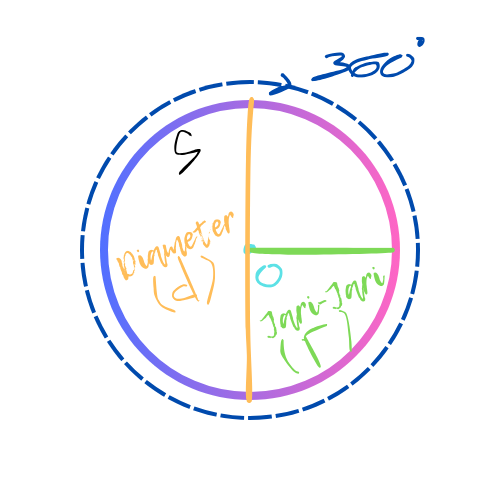 360°
S
Diameter
(d)
O
Jari-Jari
(r)